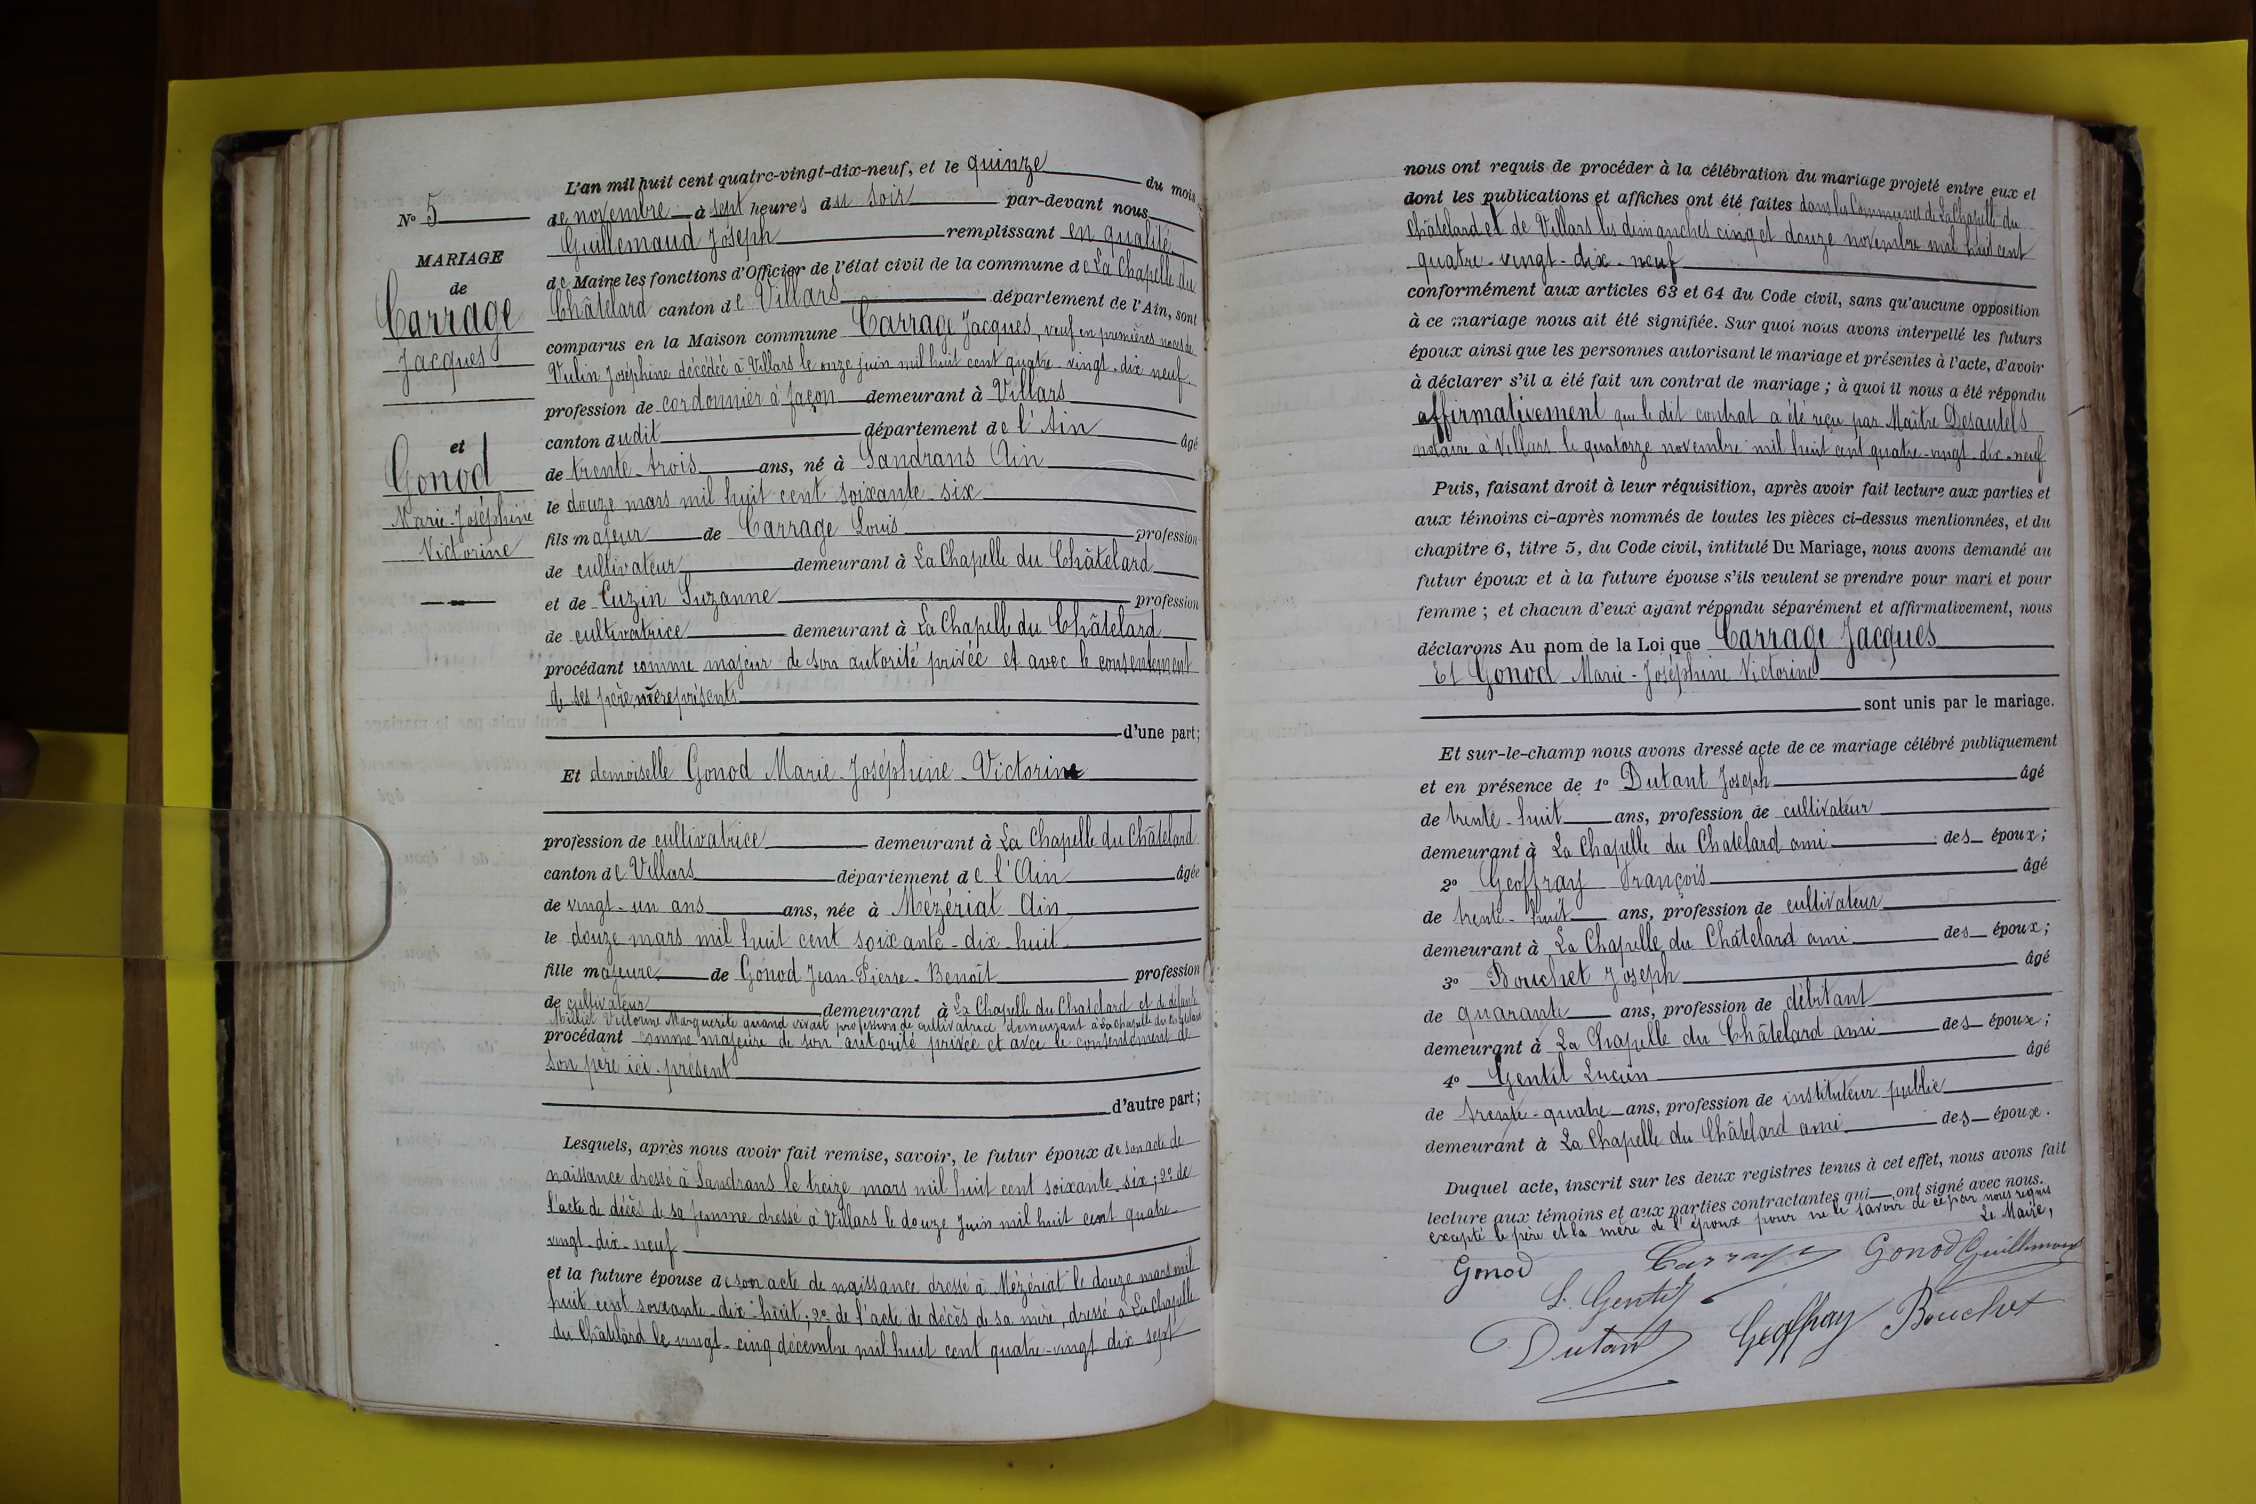 N° 5
MARIAGE
de
Carrage
Jacques
et
Gonod
Marie-Joséphine
Victorine
L'an mil huit cent quatre-vingt-dix-neuf, et le quinze du mois
de novembre à sept heures du soir par-devant nous
Guillemaud Joseph remplissant en qualité
de Maire les fonctions d'Officier de l'état civil de la commune de La Chapelle du
Châtelard canton de Villars département de l'Ain, sont
comparus en la Maison commune Carrage Jacques, veuf en premières noces de
Vulin Joséphine décédée à Villars le onze juin mil huit cent quatre-vingt-dix neuf
profession de cordonnier à façon demeurant à Villars
canton dudit département de l'Ain âgé
de trente-trois ans, né à Sandrans Ain
le douze mars mil huit cent soixante-six
fils majeur de Carrage Louis profession
de cultivateur demeurant à La Chapelle du Châtelard
et de Cuzin Suzanne profession
de cultivatrice demeurant à La Chapelle du Châtelard
procédant comme majeur de son autorité privée et avec le consentement
de ses père mère présents
d'une part;
Et demoiselle Gonod Marie-Joséphine-Victorine
profession de cultivatrice demeurant à La Chapelle du Châtelard
canton de Villars département de l'Ain âgée
de vingt-un ans ans, née à Mézériat Ain
le douze mars mil huit cent soixante-dix-huit
fille majeure de Gonod Jean-Pierre-Benoît profession
de cultivateur demeurant à La Chapelle du Chatelard et de défunte
Victorine Marguerite quand vivait profession de cultivatrice demeurant à La Chapelle du Châtelard
procédant comme majeure de son autorité privée et avec le consentement de
son père ici-présent
d'autre part;
Lesquels, après nous avoir fait remise, savoir, le futur époux de son acte de
naissance dressé à Sandrans le treize mars mil huit cent soixante-six; 2° de
l'acte de décès de sa femme dressé à Villars le douze Juin mil huit cent quatre-
vingt-dix-neuf
et la future épouse de son acte de naissance dressé à Mézériat le douze mars mil
huit cent soixante-dix-huit; 2° de l'acte de décès de sa mère, dressé à La Chapelle
du Châtelard le vingt-cinq décembre mil huit cent quatre-vingt dix sept
nous ont requis de procéder à la célébration du mariage projeté entre eux et
dont les publications et affiches ont été faites dans les Communes de La Chapelle du
Châtelard et de Villars les dimanches cinq et douze novembre mil huit cent
quatre-vingt-dix-neuf
conformément aux articles 63 et 64 du Code civil, sans qu'aucune opposition
à ce mariage nous ait été signifiée. Sur quoi nous avons interpellé les futurs
époux ainsi que les personnes autorisant le mariage et présentes à l'acte, d'avoir
à déclarer s'il a été fait un contrat de mariage; à quoi il nous a été répondu
affirmativement que le dit contrat a été reçu par Maître Desautels
notaire à Villars le quatorze novembre mil huit cent quatre-vingt-dix-neuf
Puis, faisant droit à leur réquisition, après avoir fait lecture aux parties et
aux témoins ci-après nommés de toutes les pièces ci-dessus mentionnées, et du
chapitre 6, titre 5, du Code civil, intitulé Du Mariage, nous avons demandé au
futur époux et à la future épouse s'ils veulent se prendre pour mari et pour
femme; et chacun d'eux ayant répondu séparément et affirmativement, nous
déclarons Au nom de la Loi que Carrage Jacques
Et Gonod Marie-Joséphine Victorine
sont unis par le mariage.
Et sur-le-champ nous avons dressé acte de ce mariage célébré publiquement
et en présence de 1° Dutant Joseph âgé
de trente-huit ans, profession de cultivateur
demeurant à La Chapelle du Chatelard ami des époux;
2° Geoffray François âgé
de trente-huit ans, profession de cultivateur
demeurant à La Chapelle du Châtelard ami des époux;
3° Bouchet Joseph âgé
de quarante ans, profession de débitant
demeurant à La Chapelle du Châtelard ami des époux;
4° Gentil Lucien âgé
de trente-quatre ans, profession de instituteur public
demeurant à La Chapelle du Châtelard ami des époux.
Duquel acte, inscrit sur les deux registres tenus à cet effet, nous avons fait
lecture aux témoins et aux parties contractantes qui ont signé avec nous.
excepté le père et la mère de l'époux pour ne le savoir de ce par nous requis
Le Maire,
Gonod Carrage Gonod Guillemaud
L. Gentil
Dutant Geoffray Bouchet